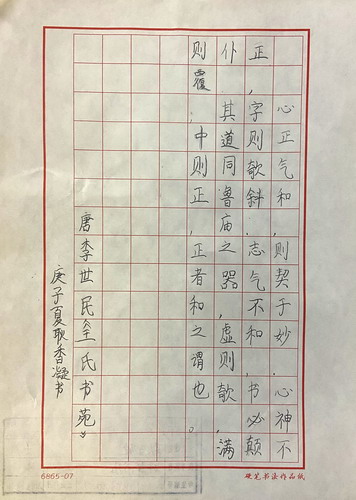 心正气和,则契于妙.心神不
正,字则欹斜.志气不和,书必颠
仆.其道同鲁庙之器,虚则欹,满
则覆.中则正,正者和之谓也。
唐李世民《王氏书苑》
庚子夏耿香凝书
6865-07
硬笔书法作品纸